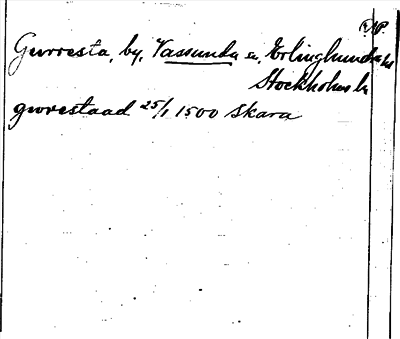 Gurresta, by, Vassunda sn, Erlinghundra hd
Stockholms l.
gwrestaad 25/1 1500 Skara